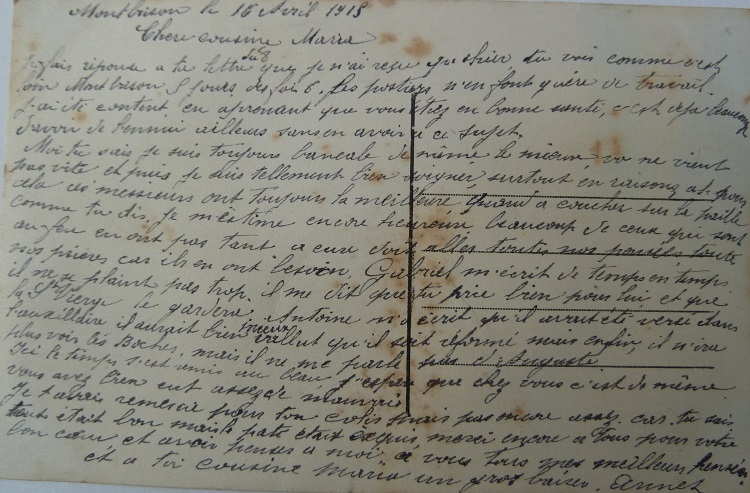 Montbrison le 16 Avril 1918
Chere cousine Maria
Je fais réponse a ta lettre du 8 que je n'ai reçu qu'hier tu vois comme c'est
loin Montbrison 8 jours des fois 6. Les postiers n'en font guère de travail.
J'ai été content en aprenant que vous étiez en bonne santé, c'est deja beaucoup
d'avoir de l'ennui ailleurs sans en avoir a ce sujet.
Moi tu sais je suis toujours bancale de même le mieux va ne vient
pas vite et puis je suis tellement bien soigner surtout en raisons
cela ces messieurs ont toujours la meilleure quand a coucher sur la paille
comme tu dis, je m'estime encore heureuse, beaucoup de ceux qui sont
au feu en ont pas tant a eux doit allés toutes nos pensés, toute
nos prières car ils en ont besoin, Gabriel m'écrit de temps en temps
il ne se plaint pas trop, il me dit que tu prie bien pour lui et que
la Ste Vierge le gardera. Antoine m'a écrit qu'il avait été versé dans
l'auxilliaire il aurait bien mieux vallut qu'il soit réformé mais enfin, il n'ira
plus voir les Boches, mais il ne me parle pas d'Auguste
Ici le temps s'est amis au beau, j'espère que chez vous c'est de même
vous avez bien eut assez de mauvais
Je t'avais remercié pour ton colis mais pas encore assez car tu sais
tout était bon mais le paté était exquis, merci encore a tous pour votre
bon cœur, et avoir penser a moi, a vous tous mes meilleurs pensées
et a toi cousine Maria un gros baiser. Annet